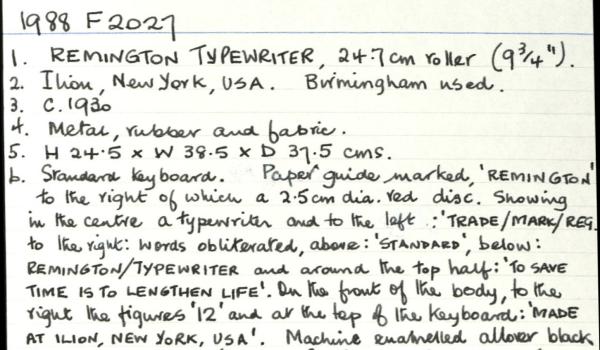 1988 F2027
1. REMINGTON TYPEWRITER, 24.7cm roller (9 3/4").
2. Ilion, New York, USA. Birmingham used.
3. C.1930
4. Metal, rubber and fabric.
5. H 24.5 x W 38.5 x D 37.5 cms.
6. Standard keyboard. Paper guide marked, 'REMINGTON'
to the right of which a 2.5cm dia. red disc. Showing
in the centre a typewriter and to the left :'TRADE/MARK/REG.
to the right: words obliterated, above: 'STANDARD', below:
REMINGTON/TYPEWRITER and around the top half: 'TO SAVE
TIME IS TO LENGTHEN LIFE'. On the front of the body, to the
right the figures '12' and at the top of the keyboard: 'MADE
AT ILION, NEW YORK, USA'. Machine enamelled allover black